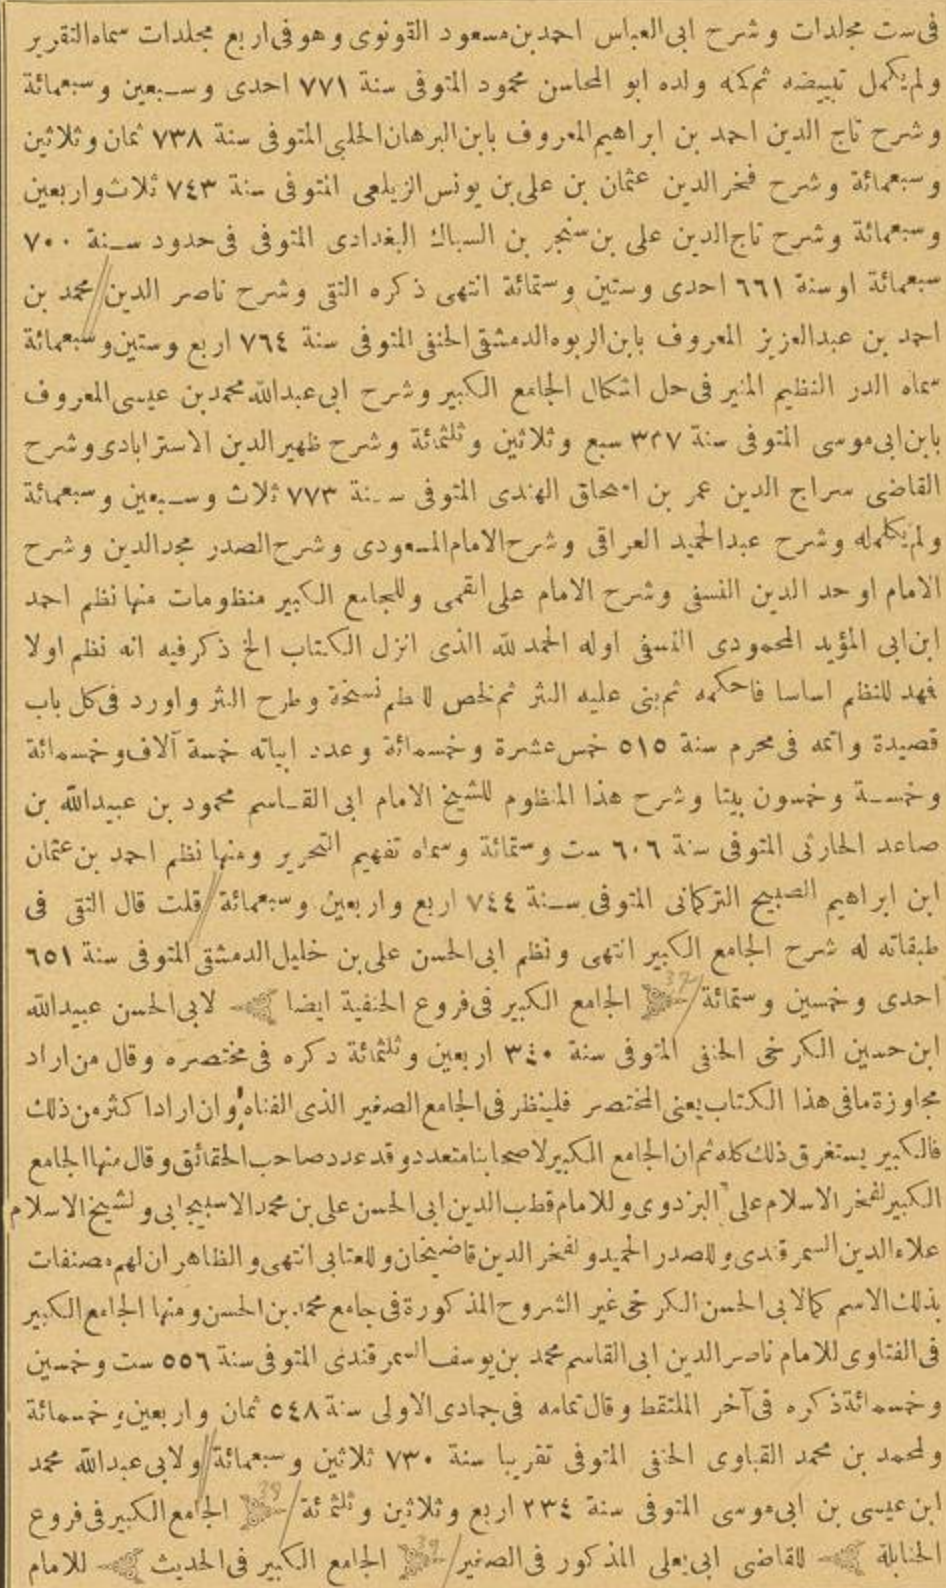 فى ست مجلدات وشرح ابى العباس احمد بن مسعود القونوى وهو فى اربع مجلدات سماه التقرير
ولم يكمل تبييضه ثم كمله ولده ابو المحاسن محمود المتوفى سنة ٧٧١ احدى وسبعين وسبعمائة
وشرح تاج الدين احمد بن ابراهيم المعروف بابن البرهان الحلبى المتوفى سنة ٧٣٨ ثمان وثلاثين
وسبعمائة وشرح فخر الدين عثمان بن على بن يونس الزيلعى المتوفى سنة ٧٤٣ ثلاث واربعين
وسبعمائة وشرح تاج الدين على بن سنجر بن السباك البغدادى المتوفى فى حدود سنة ٧٠٠
سبعمائة او سنة ٦٦١ احدى وستين وستمائة انتهى ذكره التقى وشرح ناصر الدين محمد بن
احمد بن عبد العزيز المعروف بابن الربوه الدمشقى الحنفى المتوفى سنة ٧٦٤ اربع وستين وسبعمائة
سماه الدر النظيم المنير فى حل اشكال الجامع الكبير وشرح ابى عبد الله محمد بن عيسى المعروف
بابن ابى موسى المتوفى سنة ٣٣٧ سبع وثلاثين وثلثمائة وشرح ظهير الدين الاسترابادى وشرح
القاضى سراج الدين عمر بن اسحاق الهندى المتوفى سنة ٧٧٣ ثلاث وسبعين وسبعمائة
ولم يكمله وشرح عبد الحميد العراقى وشرح الامام المسعودى وشرح الصدر مجد الدين وشرح
الامام اوحد الدين النسفى وشرح الامام على القمى وللجامع الكبير منظومات منها نظم احمد
ابن ابى المؤيد المحمودى النسفى اوله الحمد لله الذى انزل الكتاب الخ ذكر فيه انه نظم اولا
فمهد للنظم اساسا فاحكمه ثم بنى عليه النثر ثم لخص للنظم نسخة وطرح النثر واورد فى كل باب
قصيدة واتمه فى محرم سنة ٥١٥ خمس عشرة وخمسمائة وعدد ابياته خمسة آلاف وخمسمائة
وخمسة وخمسون بيتا وشرح هذا المنظوم للشيخ الامام ابى القاسم محمود بن عبيد الله بن
صاعد الحارثى المتوفى سنة ٦٠٦ ست وستمائة وسماه تفهيم التحرير ومنها نظم احمد بن عثمان
ابن ابراهيم الصبيح التركمانى المتوفى سنة ٧٤٤ اربع واربعين وسبعمائة قلت قال التقى فى
طبقاته له شرح الجامع الكبير انتهى ونظم ابى الحسن على بن خليل الدمشقى المتوفى سنة ٦٥١
احدى وخمسين وستمائة الجامع الكبير فى فروع الحنفية ايضا لابى الحسن عبيد الله
ابن حسين الكرخى الحنفى المتوفى سنة ٣٤٠ اربعين وثلثمائة ذكره فى مختصره وقال من اراد
مجاوزة ما فى هذا الكتاب يعنى المختصر فلينظر فى الجامع الصغير الذى الفناه وان اراد اكثر من ذلك
فالكبير يستغرق ذلك كله ثم ان الجامع الكبير لاصحابنا متعدد وقد عدد صاحب الحقائق وقال منها الجامع
الكبير لفخر الاسلام على البزدوى وللامام قطب الدين ابى الحسن على بن محمد الاسبيجابى ولشيخ الاسلام
علاء الدين السمرقندى وللصدر الحميد ولفخر الدين قاضيخان وللعتابى انتهى والظاهر ان لهم مصنفات
بذلك الاسم كما لابى الحسن الكرخى غير الشروح المذكورة فى جامع محمد بن الحسن ومنها الجامع الكبير
فى الفتاوى للامام ناصر الدين ابى القاسم محمد بن يوسف السمرقندى المتوفى سنة ٥٥٦ ست وخمسين
وخمسمائة ذكره فى آخر الملتقط وقال تمامه فى جمادى الاولى سنة ٥٤٨ ثمان واربعين وخمسمائة
ولمحمد بن محمد القباوى الحنفى المتوفى تقريبا سنة ٧٣٠ ثلاثين وسبعمائة ولابى عبد الله محمد
ابن عيسى بن ابى موسى المتوفى سنة ٣٣٤ اربع وثلاثين وثلثمائة الجامع الكبير فى فروع
الحنابلة للقاضى ابى يعلى المذكور فى الصغير الجامع الكبير فى الحديث للامام